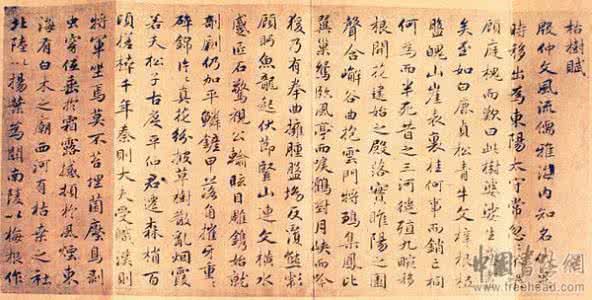 枯樹賦
殷仲文風流儒雅海內知名
時移出為東陽太守常忽
顧庭槐而歎曰此樹婆娑生
矣至如白鹿貞松青牛文梓根柢
盤魄山崖表裏桂何事而銷亡桐
何為而半死昔之三河徙殖九畹移
根開花建始之殿落實睢陽之園
聲含嶰谷曲抱雲門將雛集鳳比
翼巢鴛臨風亭而唳鶴對月峽而吟
猨乃有拳曲擁腫盤坳反覆熊彪
顧盼魚龍起伏節豎山連文橫水
蹙匠石驚視公輸眩目雕鐫始就
剞劂仍加平鱗鏟甲落角摧牙重重
碎錦片片真花紛披草樹散亂煙霞
若夫松子古度平仲君遷森梢百
頃槎枿千年秦則大夫受職漢則
將軍坐焉莫不苔埋菌壓鳥剝
蟲穿低垂於霜露撼頓於風煙東
海有白木之廟西河有枯桑之社
北陸以楊葉為關南陵以梅根作
中國書法網
www.freehead.com